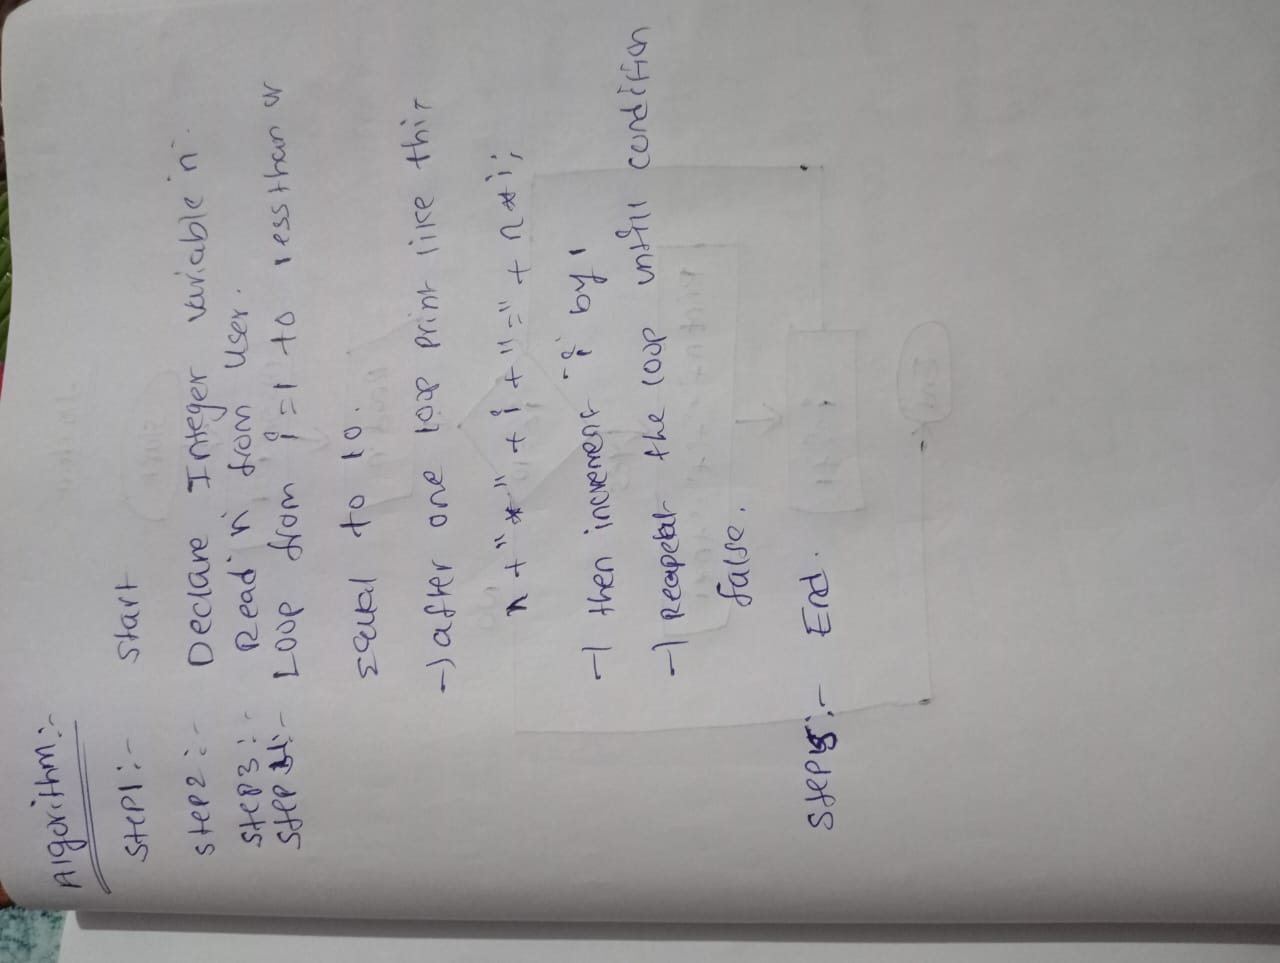 Algorithm:-
Step1:- Start
Step2:- Declare Integer variable n.
Step3:- Read n from user.
Step4:- Loop from i=1 to lessthan or
Equal to 10.
→ after one loop print like this
n+"*"+i+"="+n*i;
→ then increment "i" by 1
→ Reapetat the loop untill condition
false.
Step5:- End.